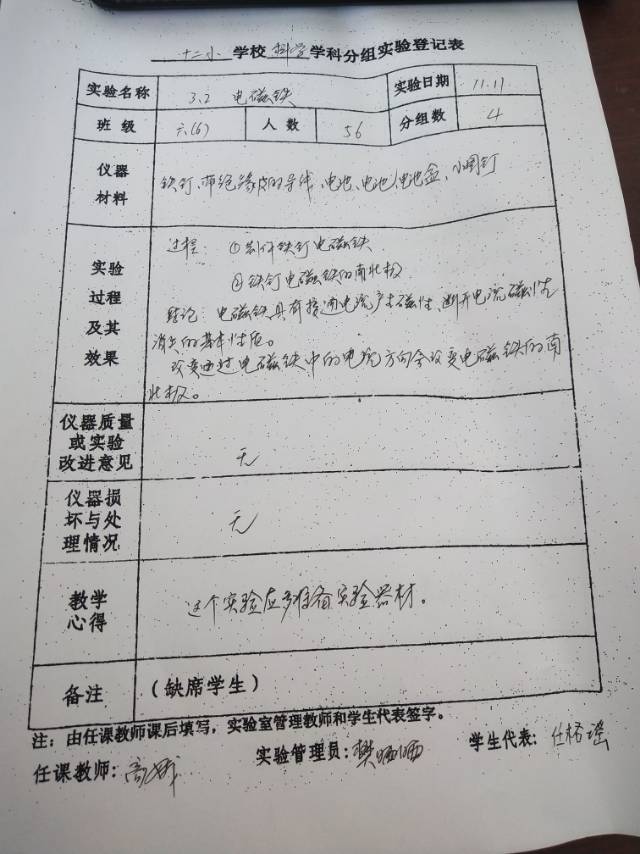 十二小 学校 科学 学科分组实验登记表
实验名称 3.2 电磁铁 实验日期 11.11
班级 六(6) 人数 56 分组数 4
仪器材料 铁钉、带绝缘皮的导线、电池、电池、电池盒、小图钉
实验过程及其效果
过程: ①制作铁钉电磁铁
②铁钉电磁铁的南北极
结论: 电磁铁具有接通电流产生磁性、断开电流磁性
消失的基本性质。
改变通过电磁铁中的电流方向会改变电磁铁的南
北极。
仪器质量或实验改进意见 无
仪器损坏与处理情况 无
教学心得 这个实验应多准备实验器材。
备注 (缺席学生)
注: 由任课教师课后填写,实验室管理教师和学生代表签字。
任课教师: 高 实验管理员: 樊 学生代表: